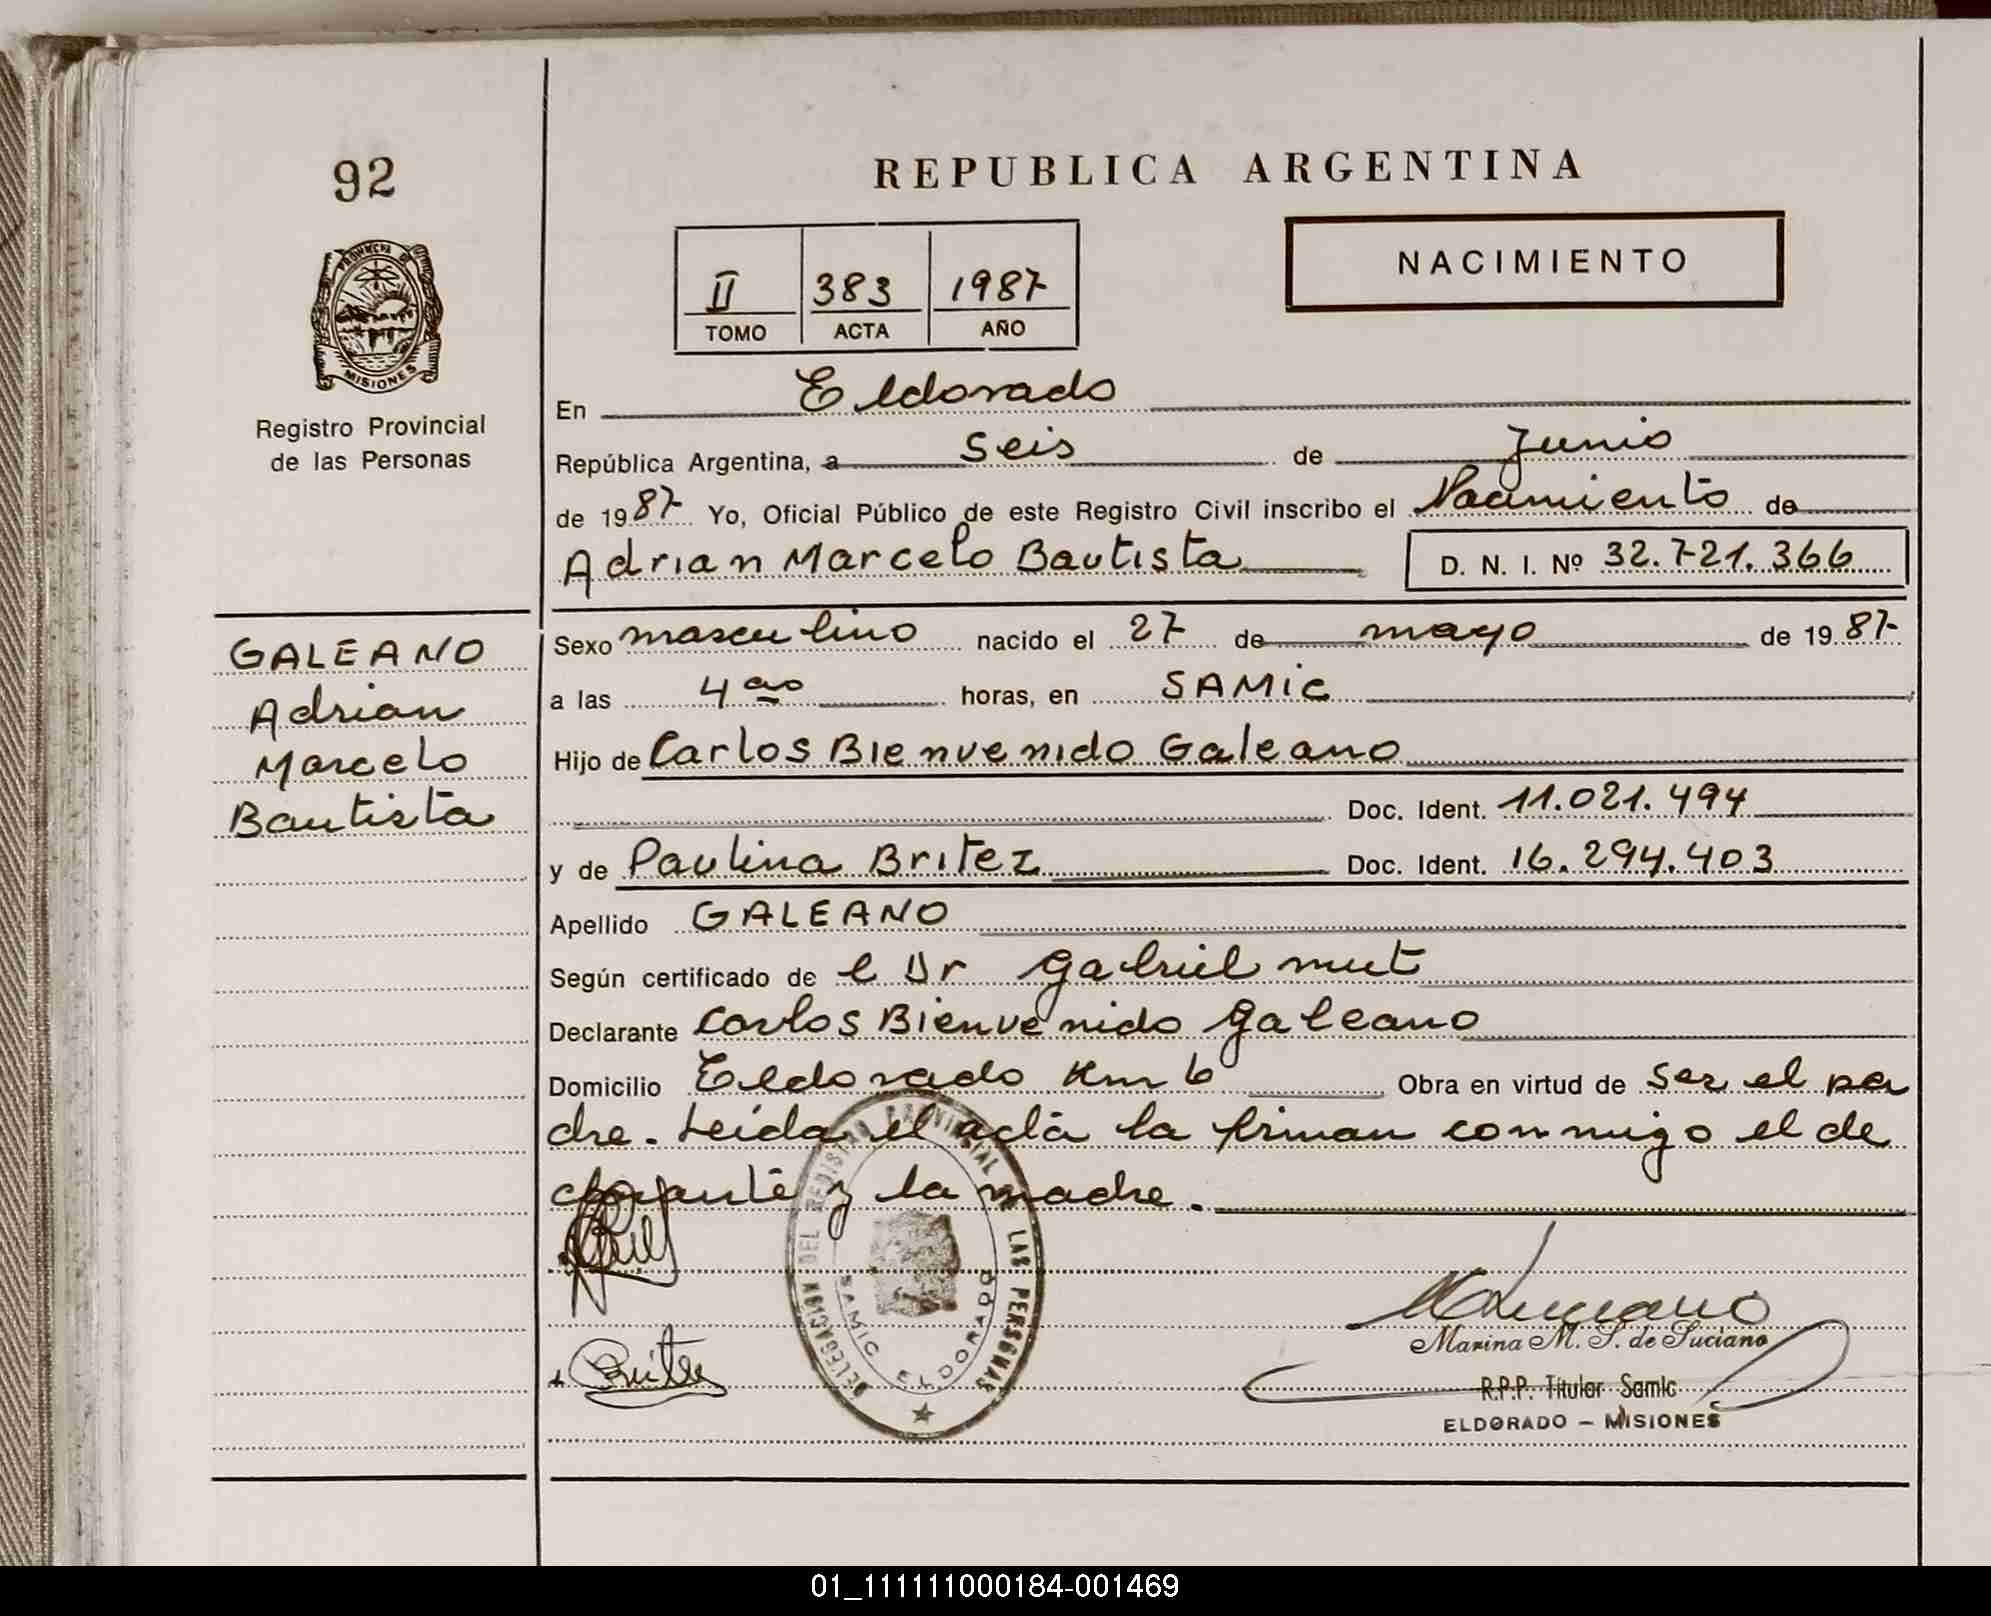 92
REPUBLICA ARGENTINA
PROVINCIA DE
MISIONES
Registro Provincial
de las Personas
II 383 1987
TOMO ACTA AÑO
NACIMIENTO
En Eldorado
República Argentina, a seis de Junio
de 1987 Yo, Oficial Público de este Registro Civil inscribo el Nacimiento de
Adrian Marcelo Bautista D. N. I. Nº 32.721.366
GALEANO
Adrian
Marcelo
Bautista
Sexo masculino nacido el 27 de mayo de 1987
a las 4 horas, en SAMIC
Hijo de Carlos Bienvenido Galeano
Doc. Ident. 11.021.494
y de Paulina Britez Doc. Ident. 16.294.403
Apellido GALEANO
Según certificado de el Dr Gabriel mut
Declarante Carlos Bienvenido Galeano
Domicilio Eldorado Km 6 Obra en virtud de ser el pa
dre. Leída el acta la firman conmigo el de
clarante y la madre.
DELEGACION DEL REGISTRO PROVINCIAL DE LAS PERSONAS
SAMIC ELDORADO
Britez
Marina M. S. de Luciano
R.P.P. Titular Samic
ELDORADO – MISIONES
01_111111000184-001469